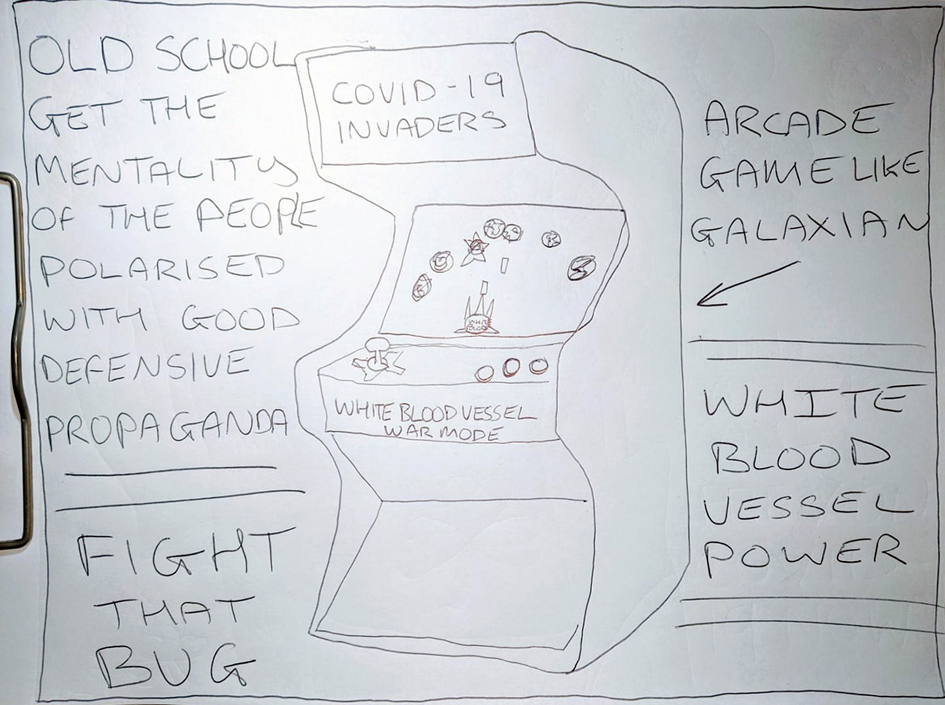 OLD SCHOOL
GET THE
MENTALITY
OF THE PEOPLE
POLARISED
WITH GOOD
DEFENSIVE
PROPAGANDA
FIGHT
THAT
BUG
COVID-19
INVADERS
WHITE BLOOD VESSEL
WAR MODE
ARCADE
GAME LIKE
GALAXIAN
WHITE
BLOOD
VESSEL
POWER